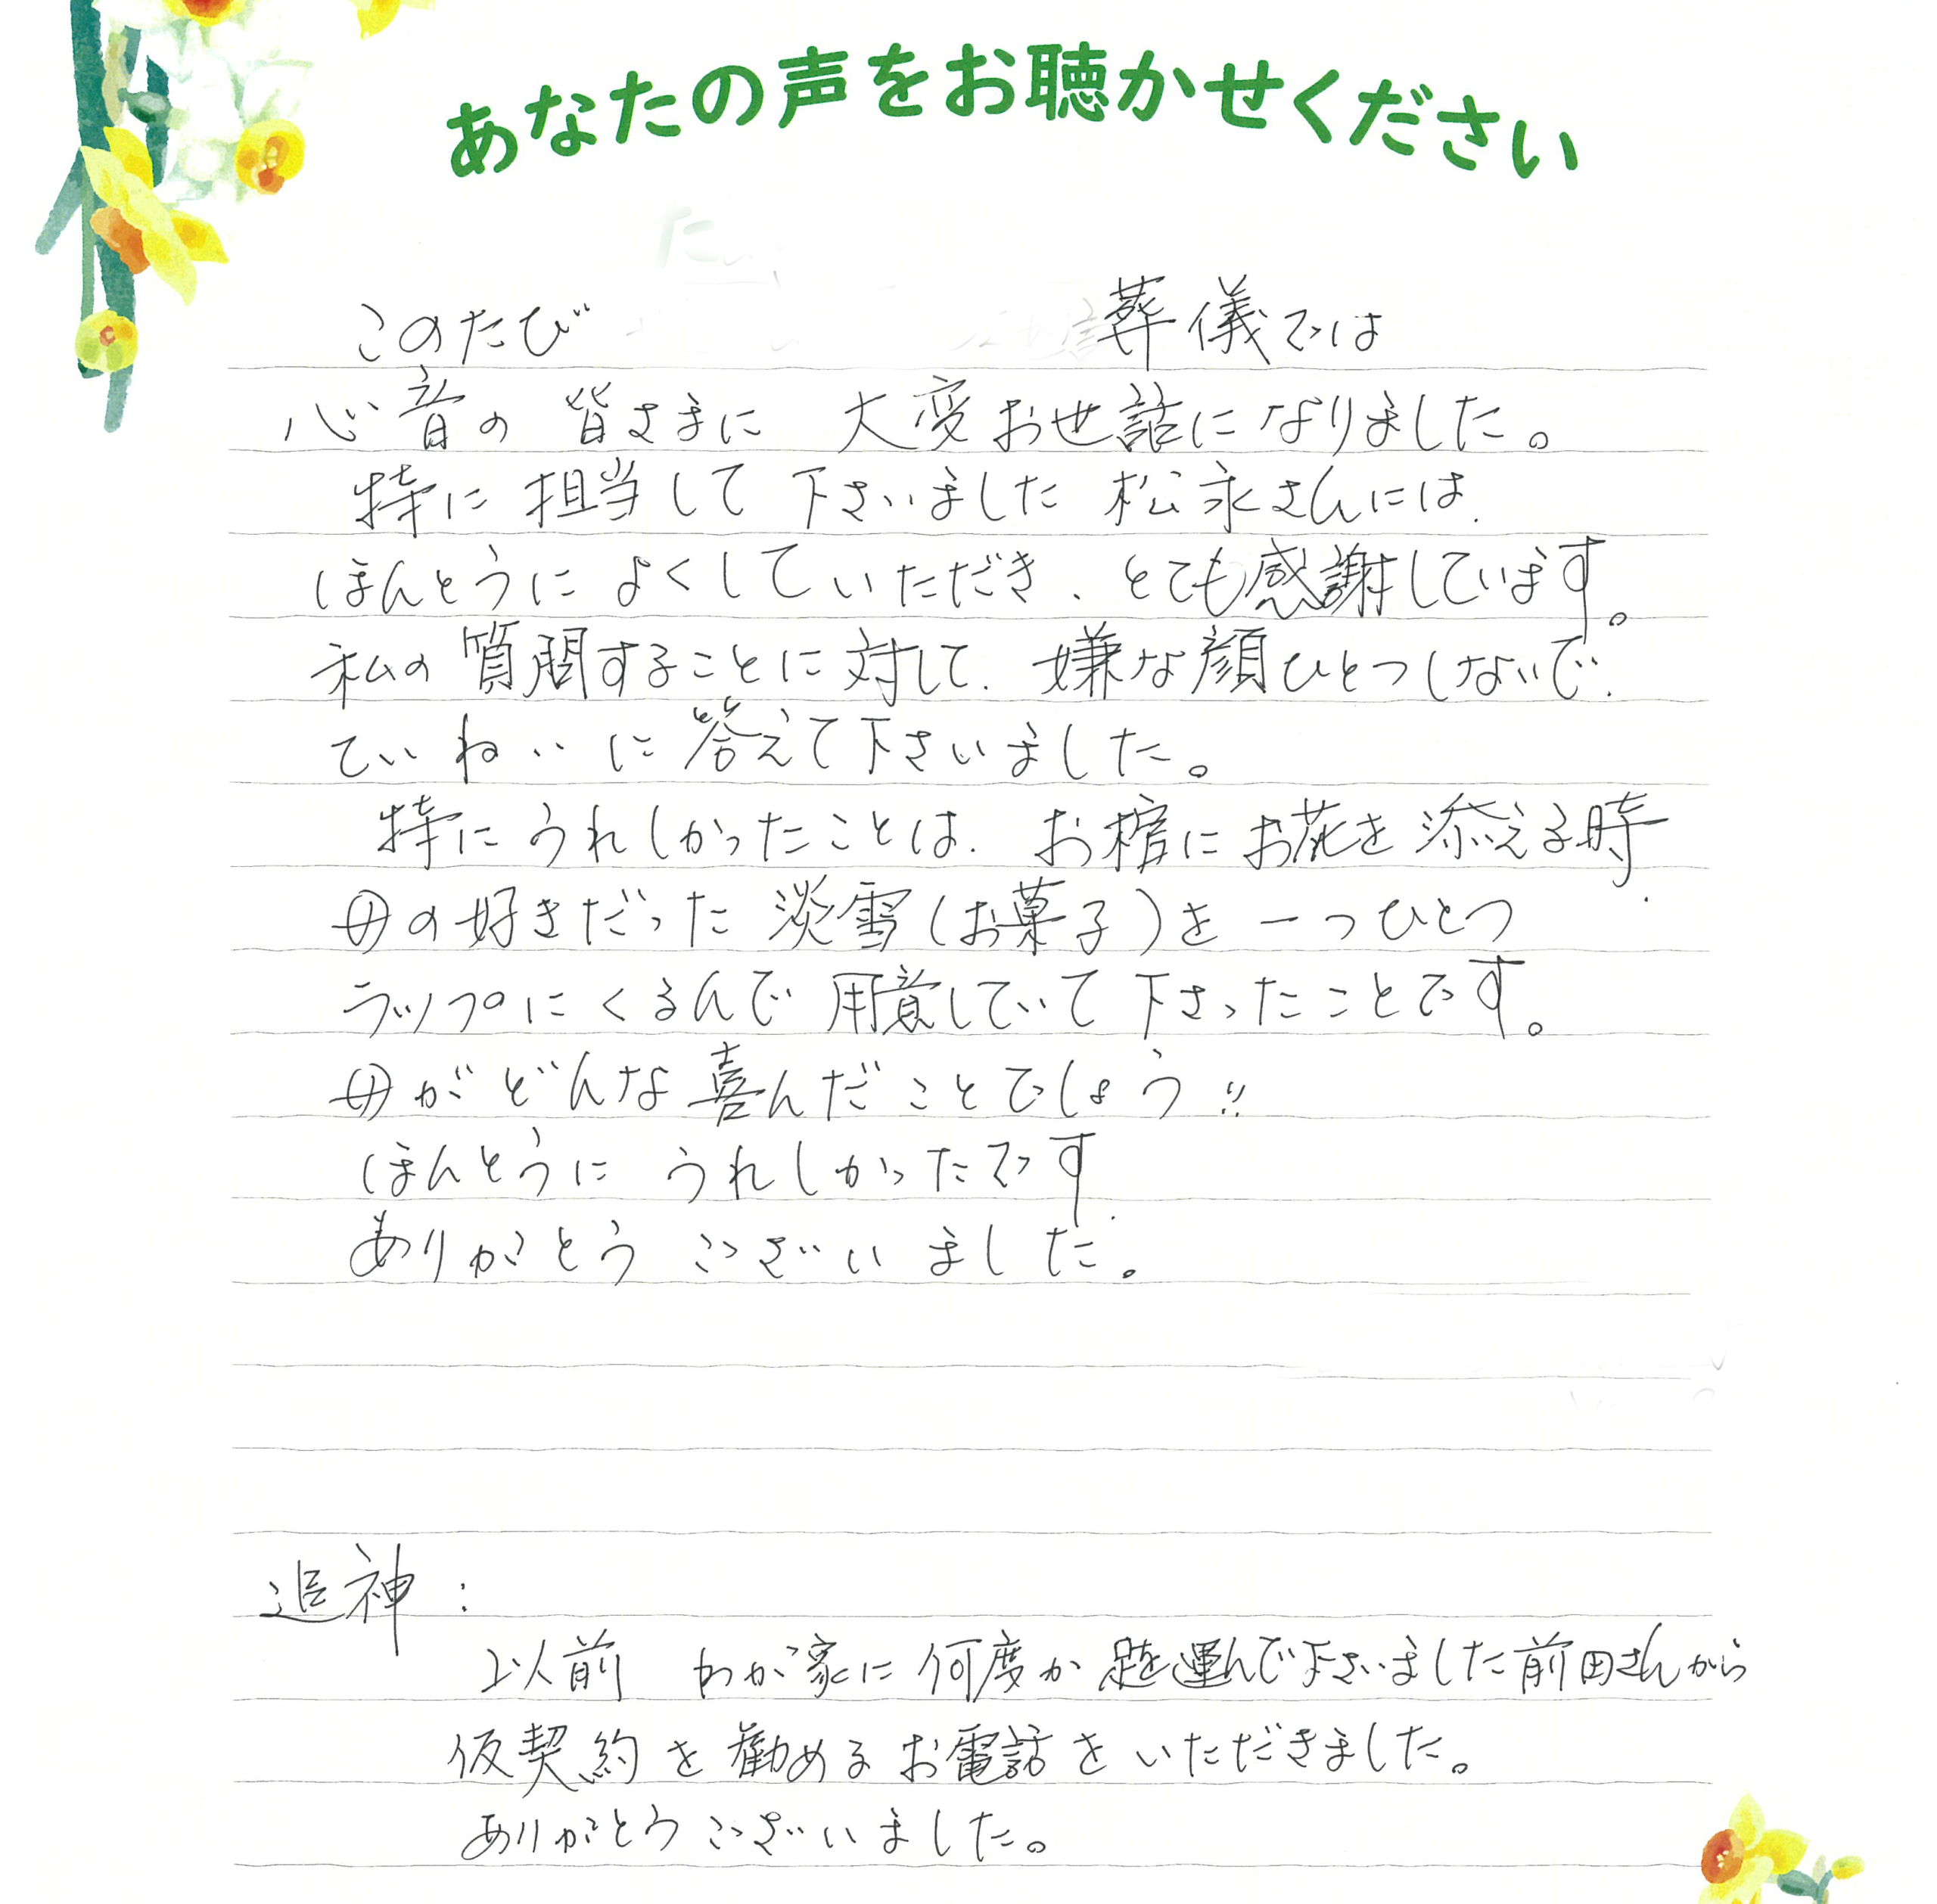 あなたの声をお聴かせください
このたび 葬儀では
心音の 皆さまに 大変お世話になりました。
特に 担当して 下さいました 松永さんには、
ほんとうに よくして いただき、とても感謝しています。
私の 質問することに 対して、嫌な顔ひとつしないで、
ていねいに 答えて下さいました。
特に うれしかったことは、お棺に お花を 添える時、
母の好きだった 淡雪(お菓子)を 一つひとつ
ラップに くるんで 用意していて 下さったことです。
母が どんな 喜んだ ことでしょう!!
ほんとうに うれしかったです。
ありがとう ございました。
追神:
以前 わが家に 何度か 足を運んで下さいました 前田さんから
仮契約を 勧める お電話を いただきました。
ありがとう ございました。